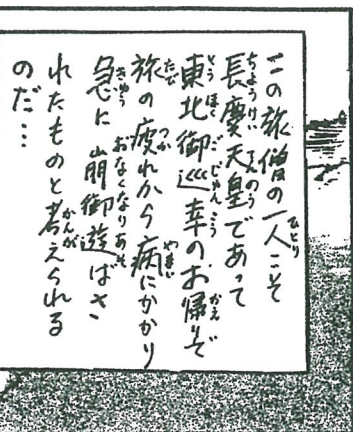 この旅僧の一人こそ
長慶天皇であって
東北御巡幸のお帰りで
旅の疲れから病にかかり
急に崩御遊ばさ
れたものと考えられる
のだ…